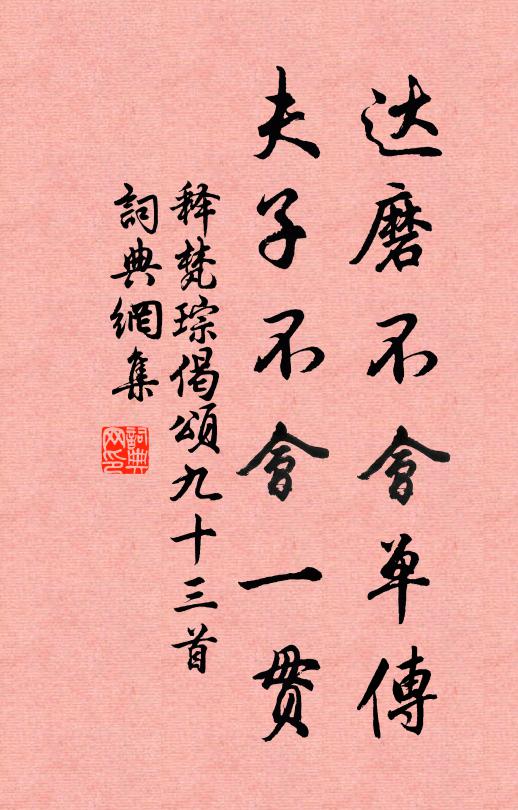 达磨不會单傳
夫子不會一贯
释梵琮偈頌九十三首
詞典網集
詞典
网印